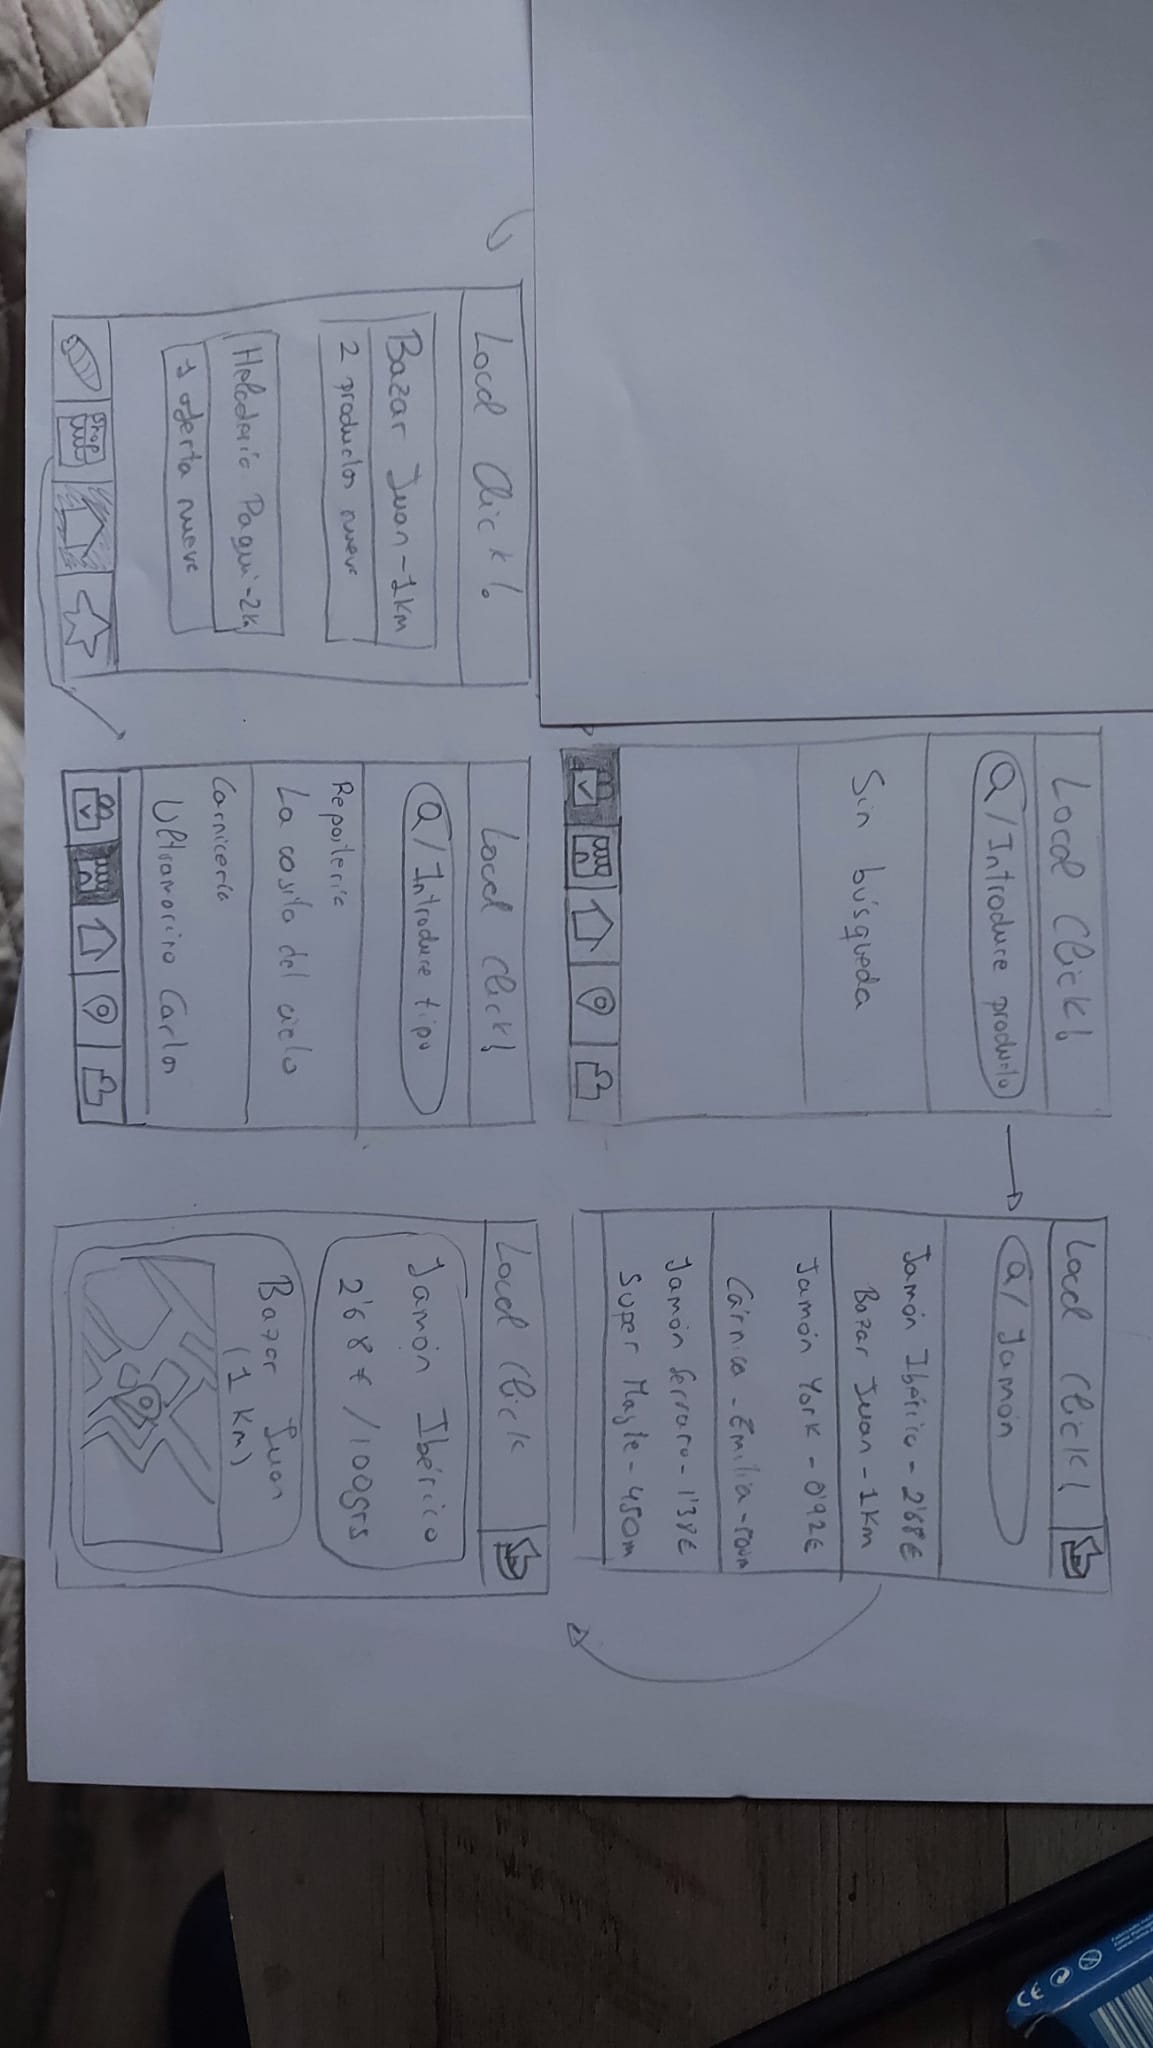 Local Click!
Q/Introduce producto
Sin búsqueda
Local Click!
Q/ Jamón
Jamón Ibérico - 2'68€
Bazar Juan - 1Km
Jamón York - 0'92€
Cárnica - Emilia - 500m
Jamón Serrano - 1'38€
Super - 450m
Local Click!
Bazar Juan - 1Km
2 productos nuevo
Heladería Paqui - 2K
1 oferta nueva
Shop
Local Click!
Q/Introduce tipo
Repostería
La cosita del cielo
Carnicería
Ultramarino Carlos
Local Click
Jamón Ibérico
2'68€ /100grs
Bazar Juan
(1 Km)
CE